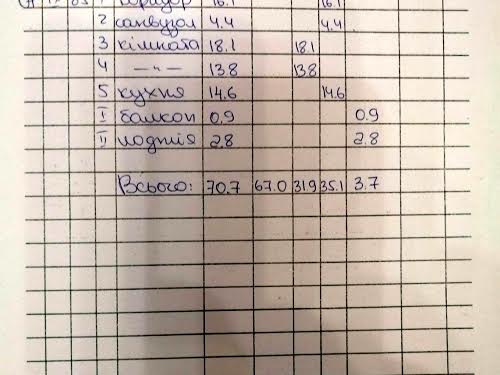 1 коридор 16.1 16.1
2 санвузол 4.4 4.4
3 кімната 18.1 18.1
4 —"— 13.8 13.8
5 кухня 14.6 14.6
I балкон 0.9 0.9
II лоджія 2.8 2.8
Всього: 70.7 67.0 31.9 35.1 3.7